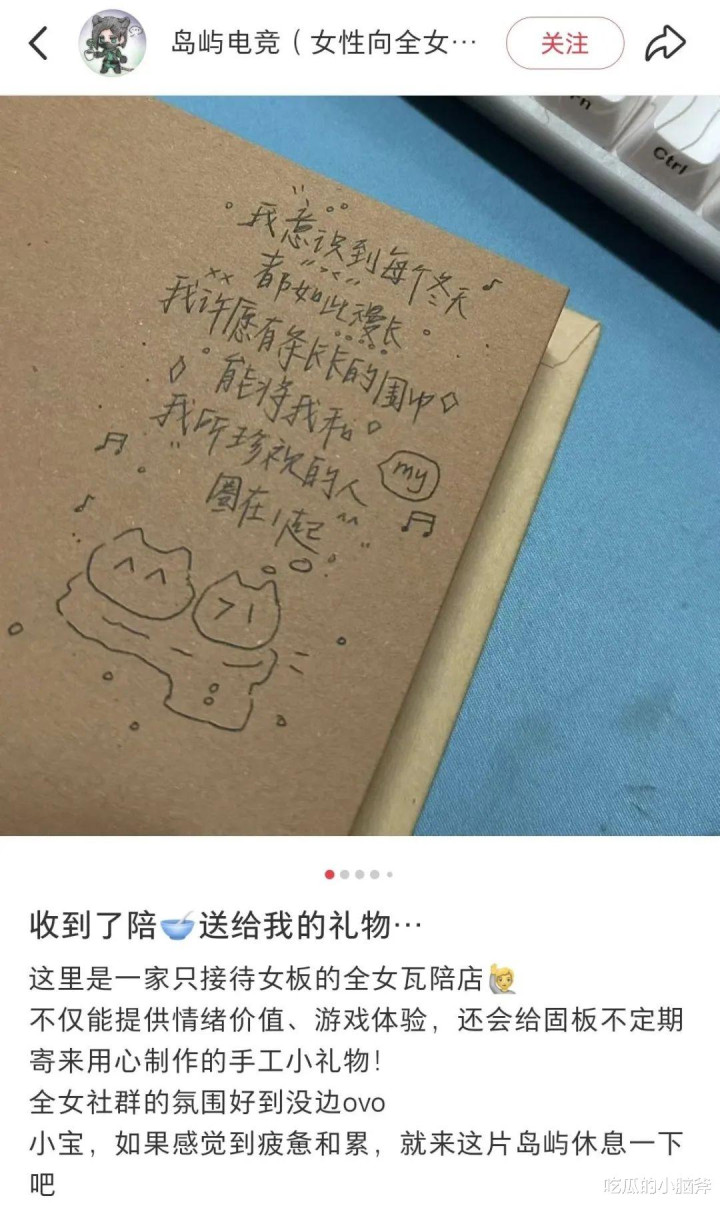 岛屿电竞（女性向全女…
关注
rn
Ctrl
我意识到每个冬天
都如此漫长
我许愿有条长长的围巾
能将我和
我所珍视的人
my
圈在一起
收到了陪🥣送给我的礼物…
这里是一家只接待女板的全女瓦陪店🙋
不仅能提供情绪价值、游戏体验，还会给固板不定期
寄来用心制作的手工小礼物！
全女社群的氛围好到没边ovo
小宝，如果感觉到疲惫和累，就来这片岛屿休息一下
吧
吃瓜的小脑斧